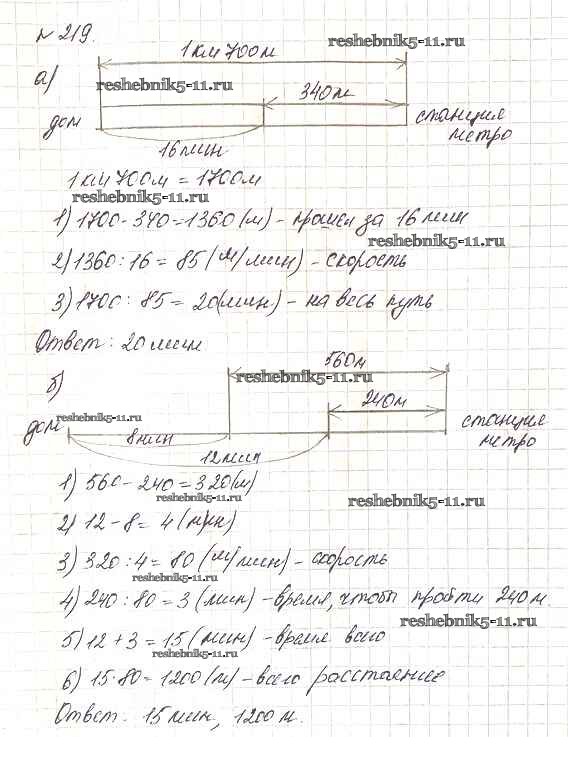 №219.
1 км 700 м
reshebnik5-11.ru
а)
reshebnik5-11.ru
340 м
дом
станция
метро
16 мин
1 км 700 м = 1700 м
reshebnik5-11.ru
1) 1700 - 340 = 1360 (м) - прошел за 16 мин
reshebnik5-11.ru
2) 1360 : 16 = 85 (м/мин) - скорость
3) 1700 : 85 = 20 (мин) - на весь путь
Ответ: 20 мин
560 м
б)
reshebnik5-11.ru
240 м
reshebnik5-11.ru
дом
станция
метро
8 мин
12 мин
1) 560 - 240 = 320 (м)
reshebnik5-11.ru
reshebnik5-11.ru
2) 12 - 8 = 4 (мин)
3) 320 : 4 = 80 (м/мин) - скорость
reshebnik5-11.ru
4) 240 : 80 = 3 (мин) - время, чтобы пройти 240 м.
reshebnik5-11.ru
5) 12 + 3 = 15 (мин) - время всего
reshebnik5-11.ru
6) 15 · 80 = 1200 (м) - всего расстояние
Ответ: 15 мин, 1200 м.